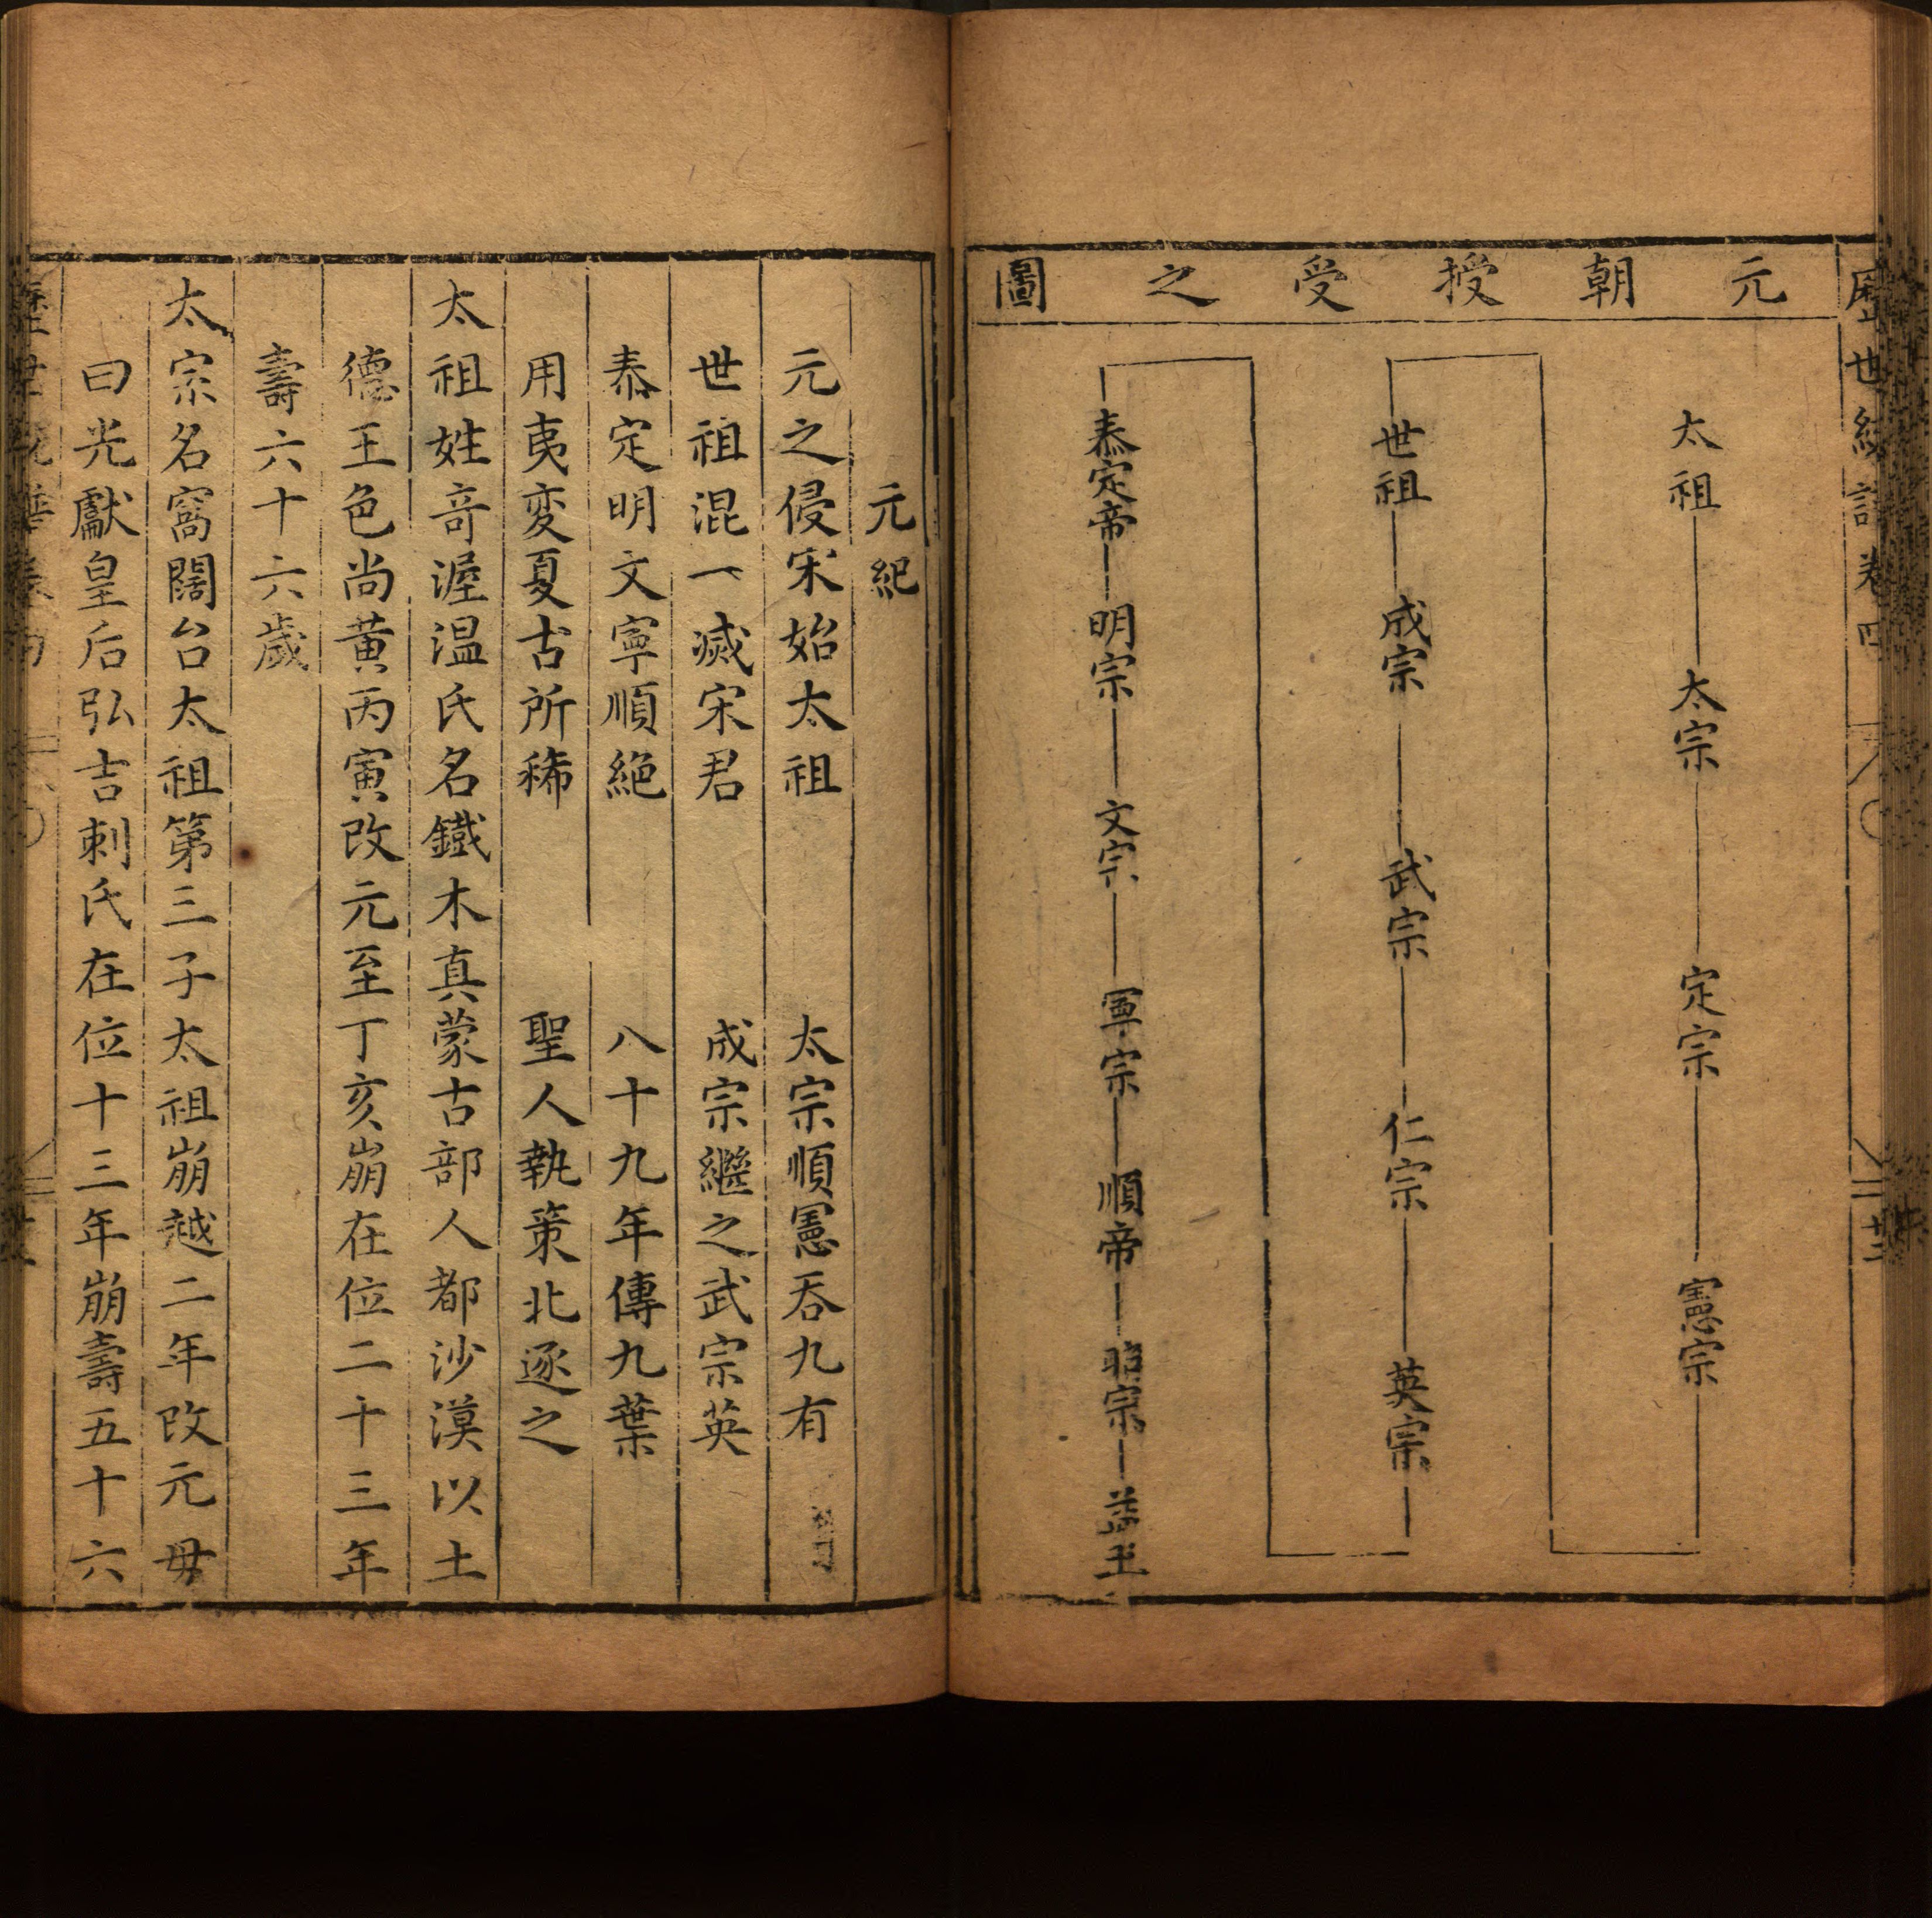 元朝授受之圖
太祖 太宗 定宗 憲宗
世祖 成宗 武宗 仁宗 英宗
泰定帝 明宗 文宗 寧宗 順帝 昭宗
元紀
元之侵宋始太祖 太宗順憲吞九有
世祖混一滅宋君 成宗繼之武宗英
泰定明文寧順絕 八十九年傳九葉
用夷変夏古所稀 聖人執策北逐之
太祖姓竒渥温氏名鐵木真蒙古部人都沙漠以土
德王色尚黄丙寅改元至丁亥崩在位二十三年
壽六十六歲
太宗名窩闊台太祖第三子太祖崩越二年改元毋
曰光獻皇后弘吉刺氏在位十三年崩壽五十六